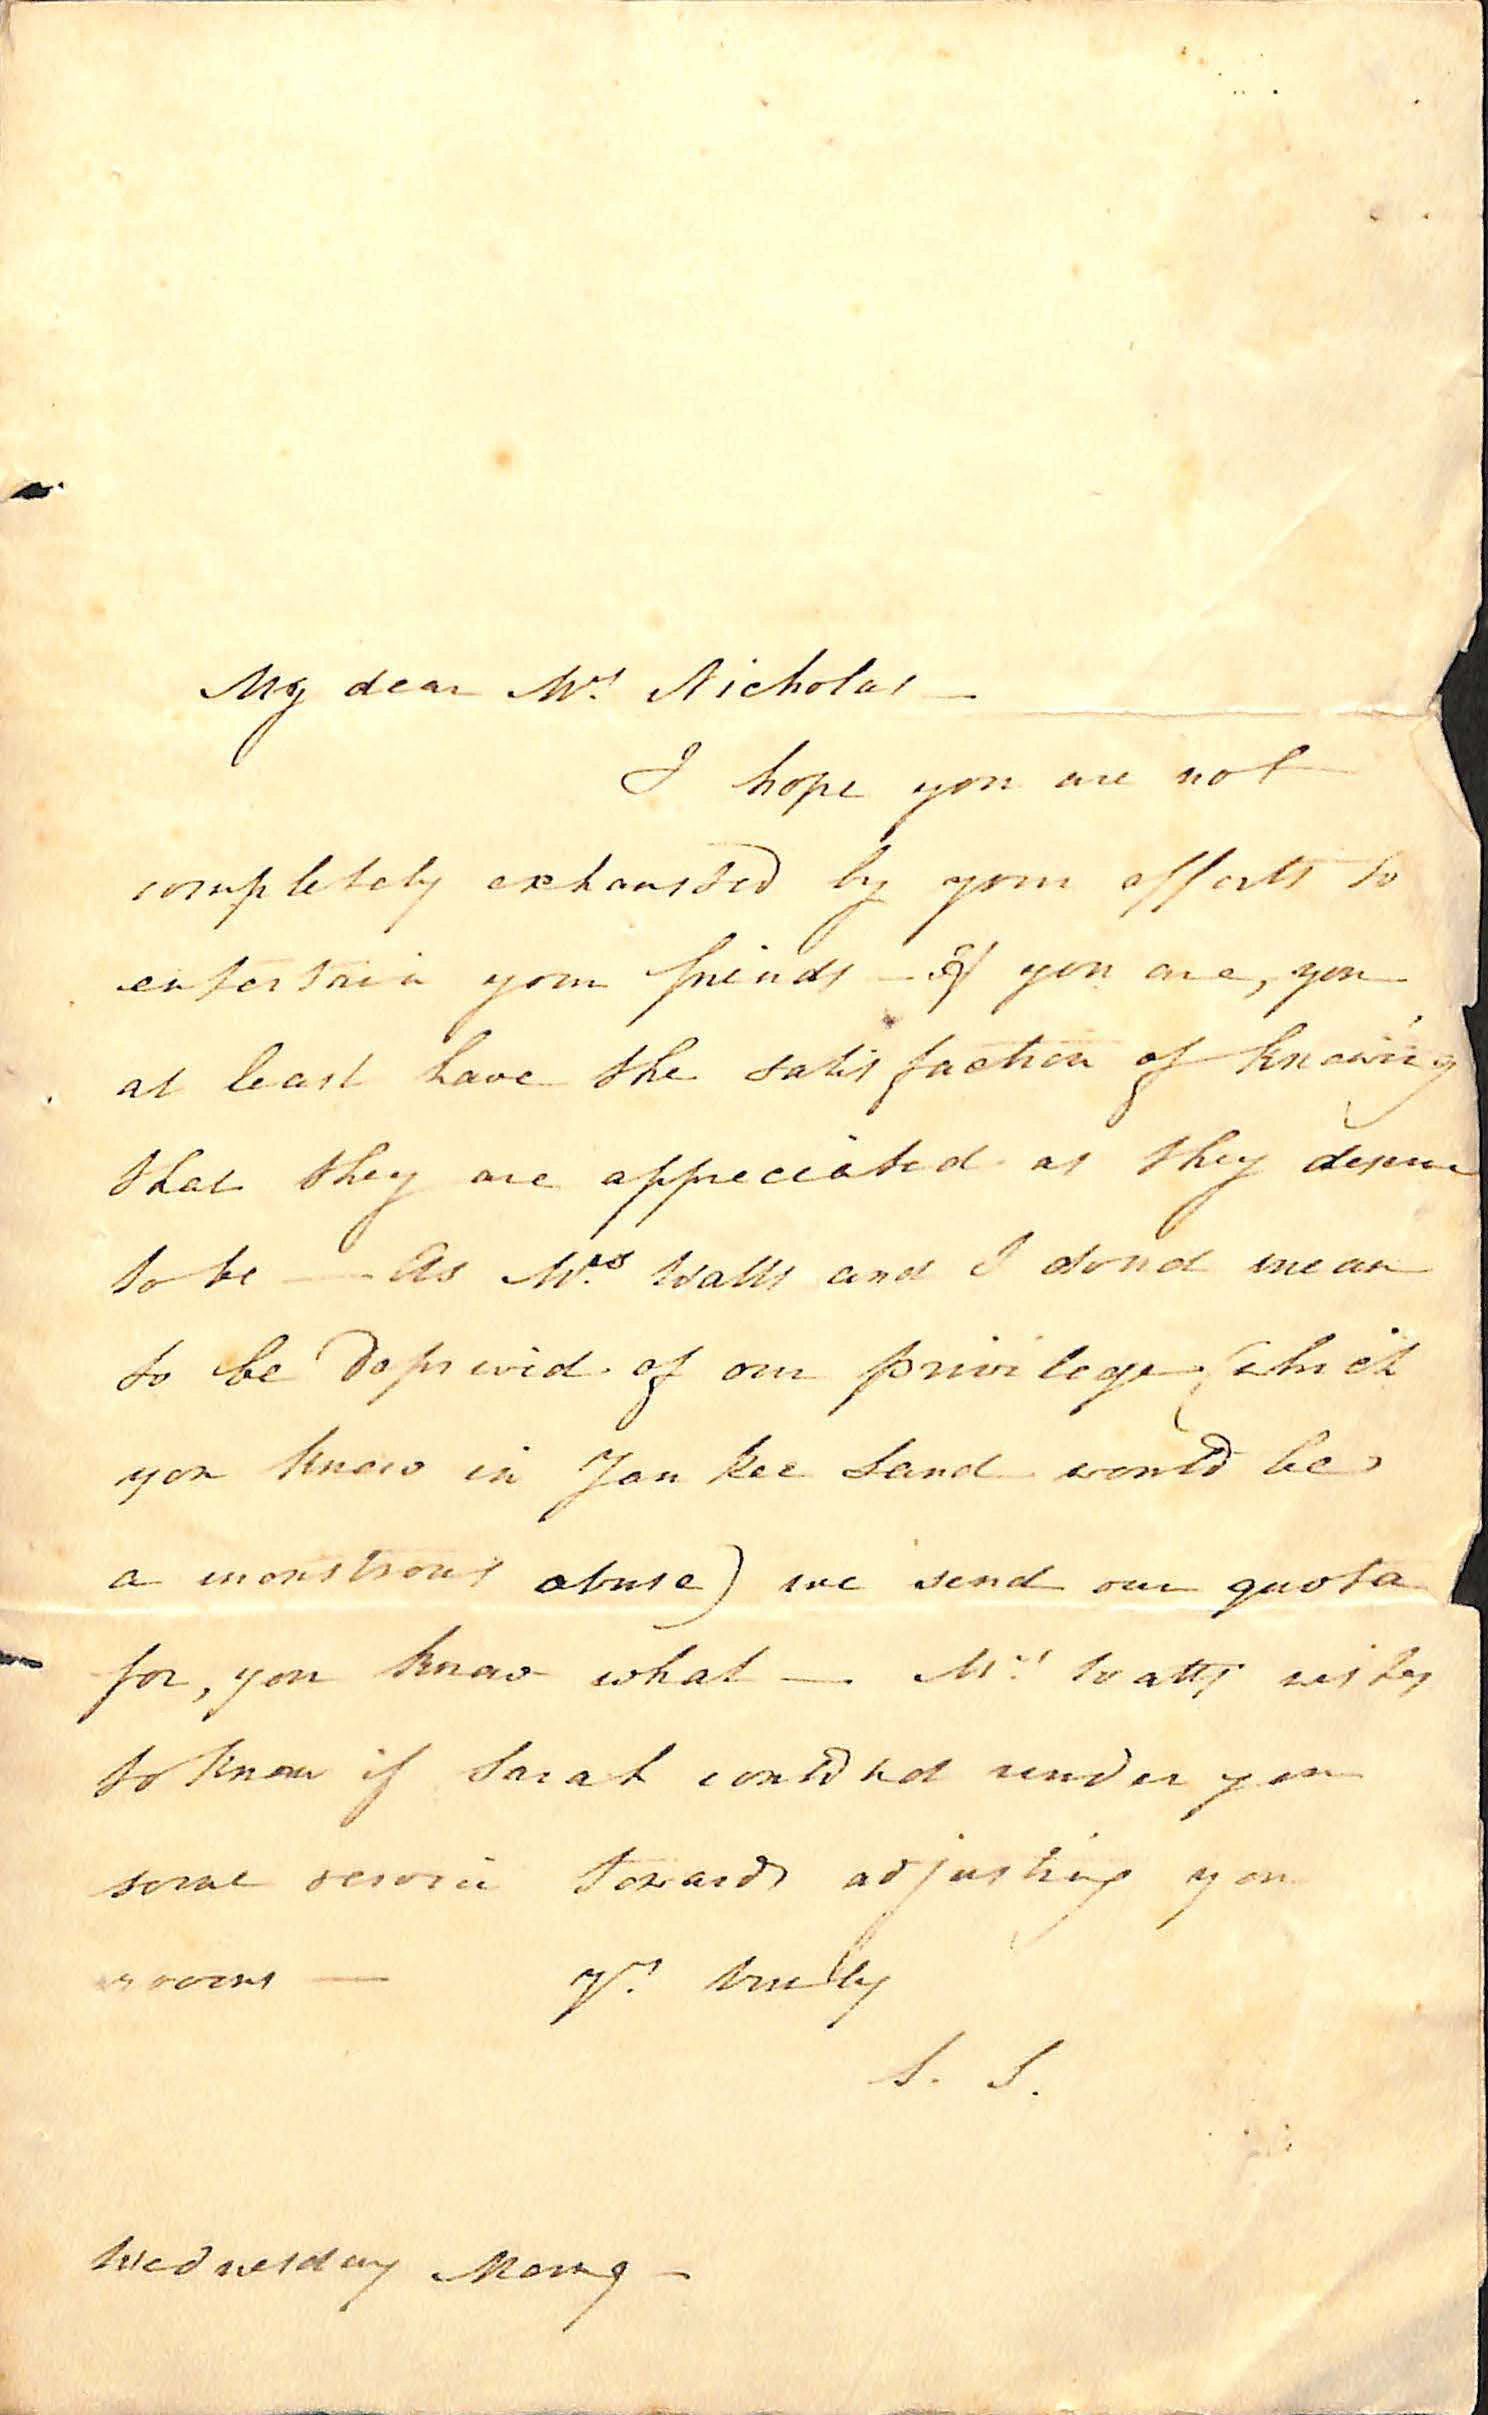 My dear Mrs Nicholas —
I hope you are not
completely exhausted by your efforts to
entertain your friends — If you are, you
at least have the satisfaction of knowing
that they are appreciated as they deserve
to be — As Mrs Watts and I do not mean
to be deprived of our privilege (which
you know in Yankee Land would be
a monstrous abuse) we send our quota
for, you know what — Mrs Watts wishes
to know if Sarah could not render you
some service towards adjusting your
rooms — Yrs truly
S. S.
Wednesday Morng —